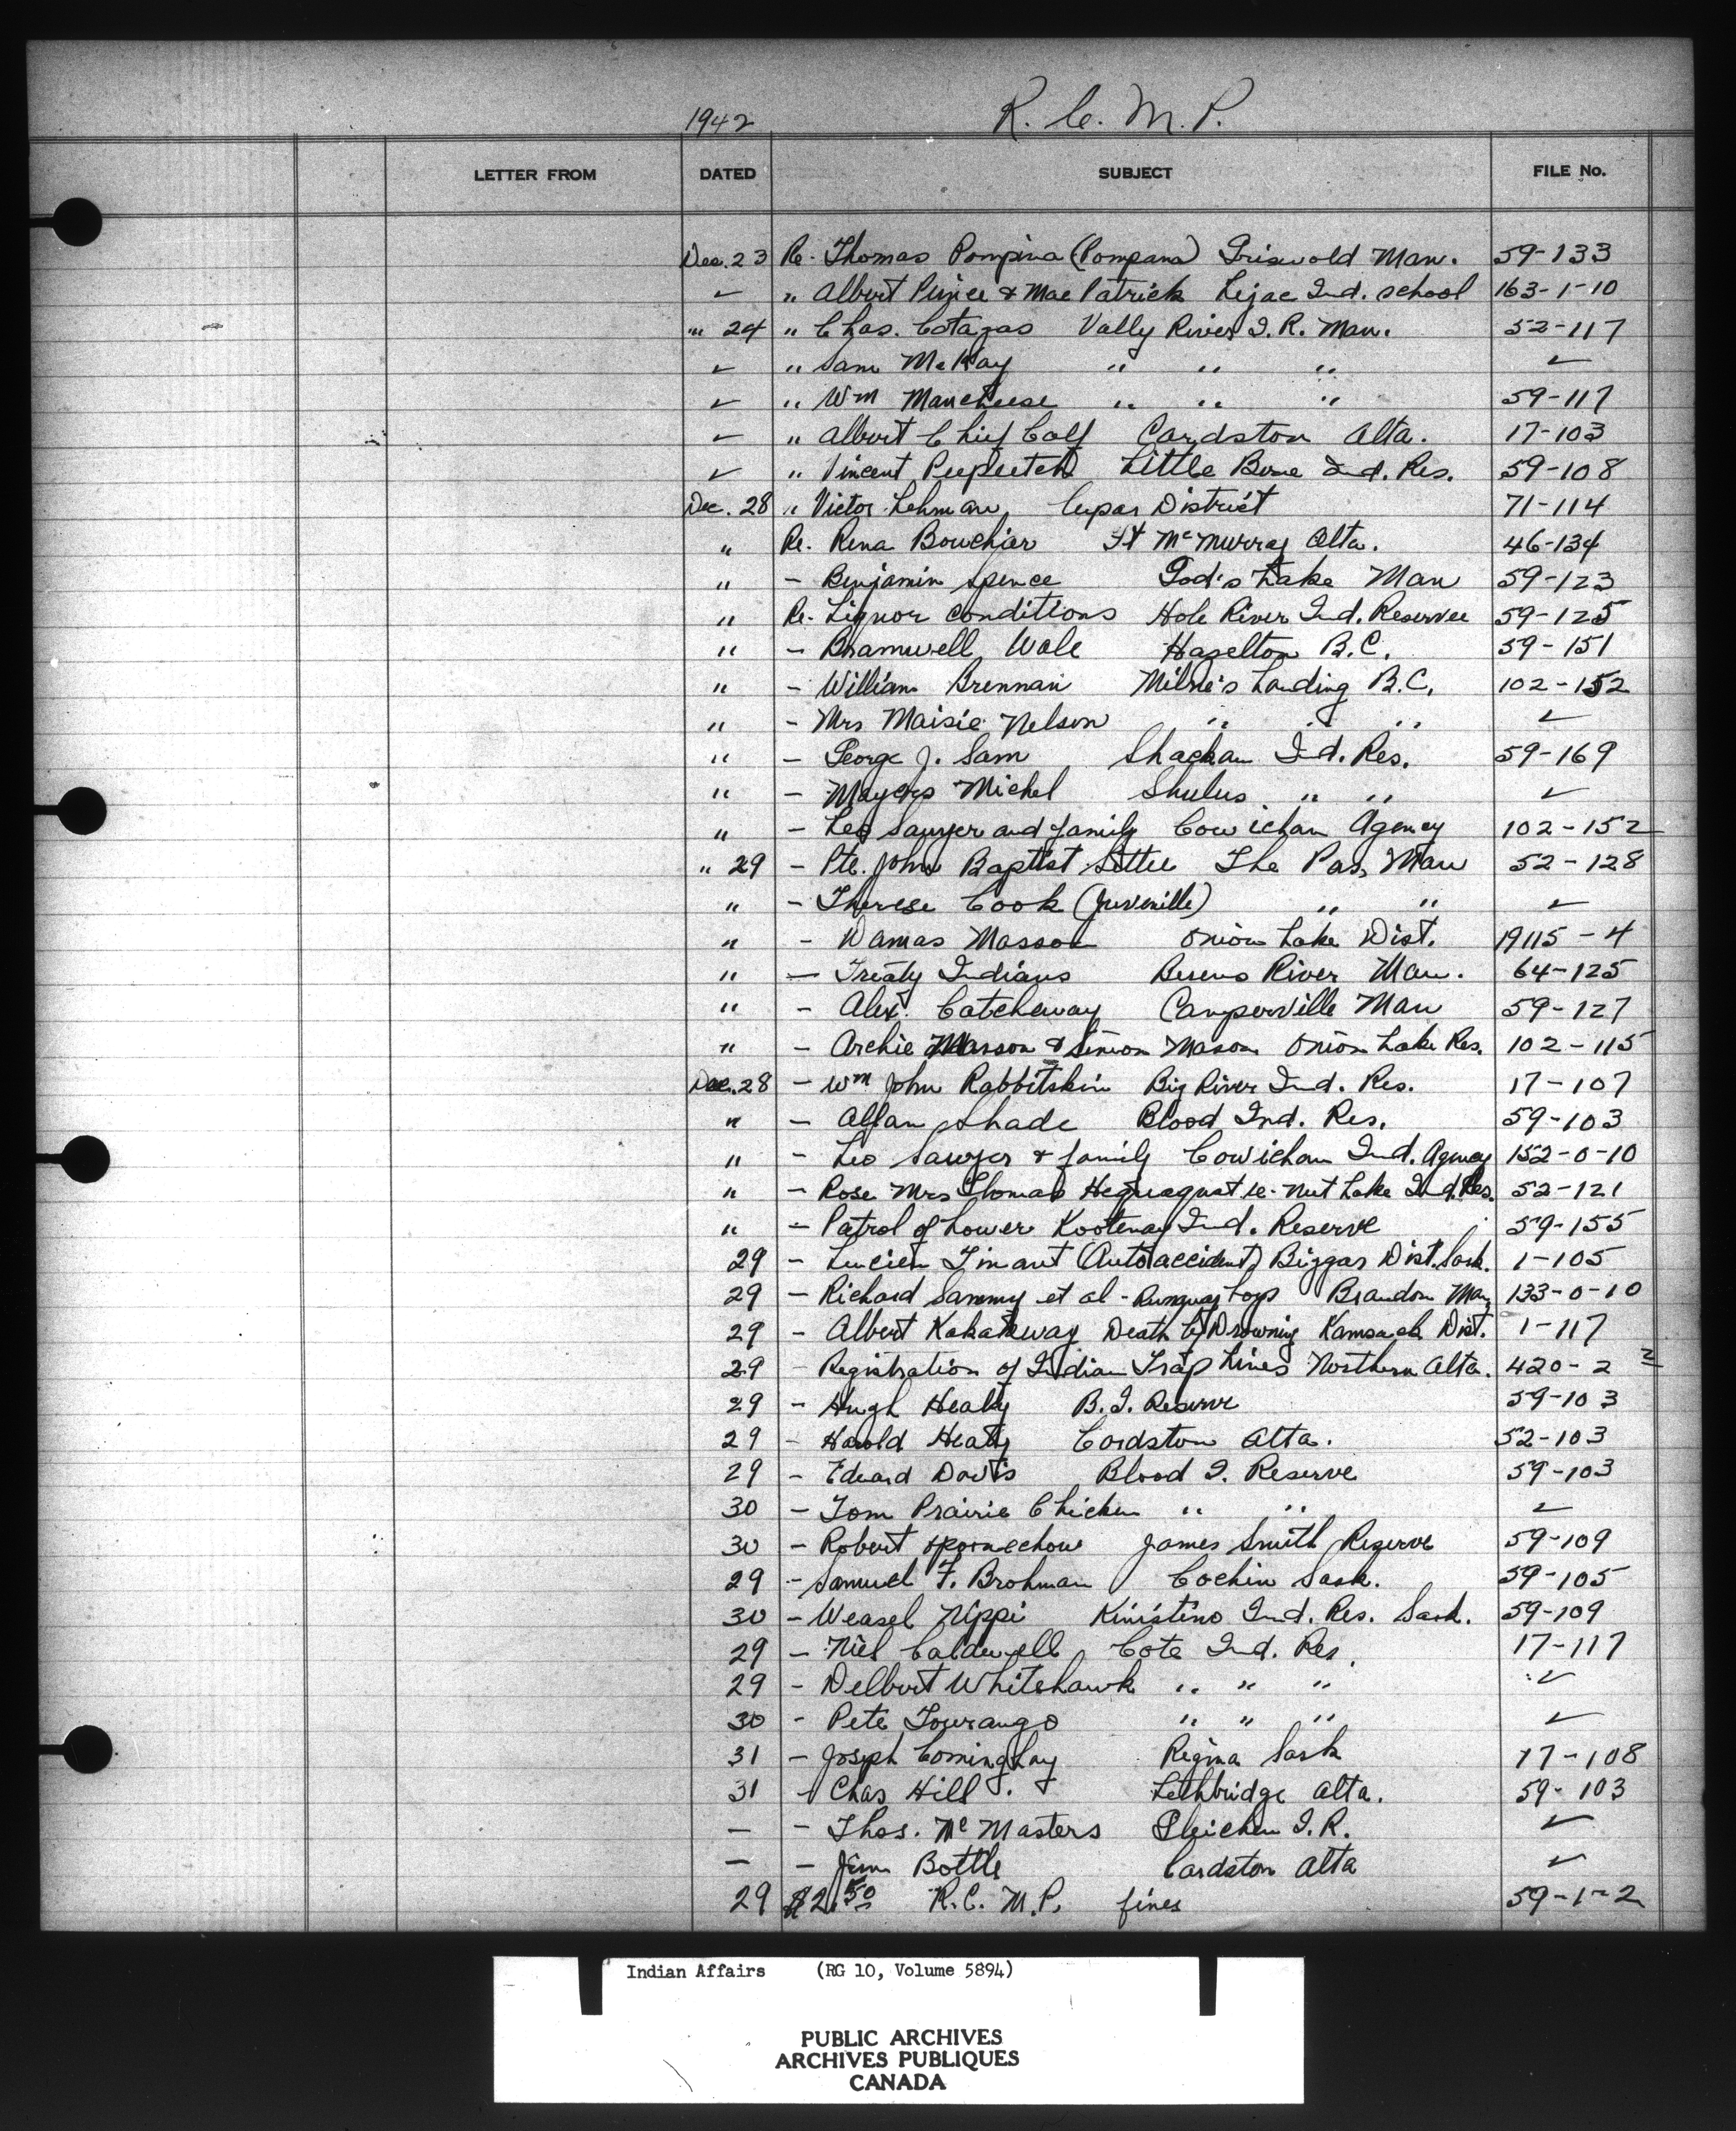 1942 R. C. M. P.
LETTER FROM DATED SUBJECT FILE No.
Dec. 23 Re. Thomas Pompina (Pompana) Griswold Man. 59-133
✓ " Albert Prince & Mae Patrick Lejac Ind. School 163-1-10
" 24 " Chas. Cotazas Vally River I. R. Man. 52-117
✓ " Sam McKay " " " ✓
✓ " Wm Mancheese " " " 59-117
✓ " Albert Chief Calf Cardston Alta. 17-103
✓ " Vincent Little Bone Ind. Res. 59-108
Dec. 28 " Victor Lehman, Cupar District 71-114
" Re. Rena Bouchier Ft McMurray Alta. 46-134
" - Benjamin Spence God's Lake Man 59-123
" Re. Liquor conditions Hole River Ind. Reserve 59-125
" - Bramwell Wale Hazelton B.C. 59-151
" - William Brennan Milne's Landing B.C. 102-152
" - Mrs Maisie Nelson " " " ✓
" - George J. Sam Shackan Ind. Res. 59-169
" - Mayers Michel Shulus " " ✓
" - Leo Sawyer and family Cowichan Agency 102-152
" 29 - Pte. John Baptist Settee The Pas, Man 52-128
" - Therese Cook (Juvenille) " " ✓
" - Damas Masson Onion Lake Dist. 19115-4
" - Treaty Indians Berens River Man. 64-125
" - Alex. Catcheway Camperville Man 59-127
" - Archie Masson & Simon Mason Onion Lake Res. 102-115
Dec. 28 - Wm John Rabbitskin Big River Ind. Res. 17-107
" - Allan Shade Blood Ind. Res. 59-103
" - Leo Sawyer & family Cowichan Ind. Agency 152-0-10
" - Rose Mrs Thomas re. Nut Lake Ind. Res. 52-121
" - Patrol of Lower Kootenay Ind. Reserve 59-155
29 - Lucien Timant (Auto accident) Biggar Dist. Sask. 1-105
29 - Richard Sammy et al - Runaway boys Brandon Man, 133-0-10
29 - Albert Kakakeway Death by Drowning Kamsack Dist. 1-117
29 - Registration of Indian Trap Lines Northern Alta. 420-2 2
29 - Hugh Healy B. I. Reserve 59-103
29 - Harold Healy Cardston Alta. 52-103
29 - Edward Davis Blood I. Reserve 59-103
30 - Tom Prairie Chicken " " ✓
30 - Robert James Smith Reserve 59-109
29 - Samuel F. Brohman Cochin Sask. 59-105
30 - Weasel Nippi Kinistino Ind. Res. Sask. 59-109
29 - Niel Caldwell Cote Ind. Res. 17-117
29 - Delbert Whitehawk " " " ✓
30 - Pete Tourango " " " ✓
31 - Joseph Cominghay Regina Sask 17-108
31 - Chas Hill Lethbridge Alta. 59-103
- - Thos. McMasters Gleichen I. R. ✓
- - Jim Bottle Cardston Alta ✓
29 $2.50 R. C. M. P. fines 59-1-2
Indian Affairs (RG 10, Volume 5894)
PUBLIC ARCHIVES
ARCHIVES PUBLIQUES
CANADA